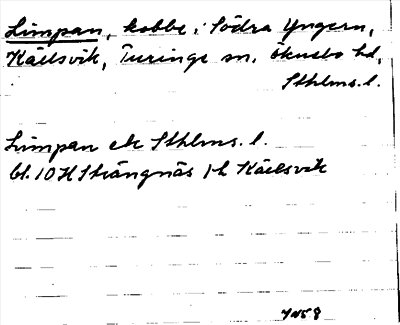 Limpan, kobbe, i Södra Yngern,
Källsvik, Turinge sn, Öknebo hd,
Sthlms. l.
Limpan ek Sthlms. l.
bl. 10 H Strängnäs 1 h Källsvik